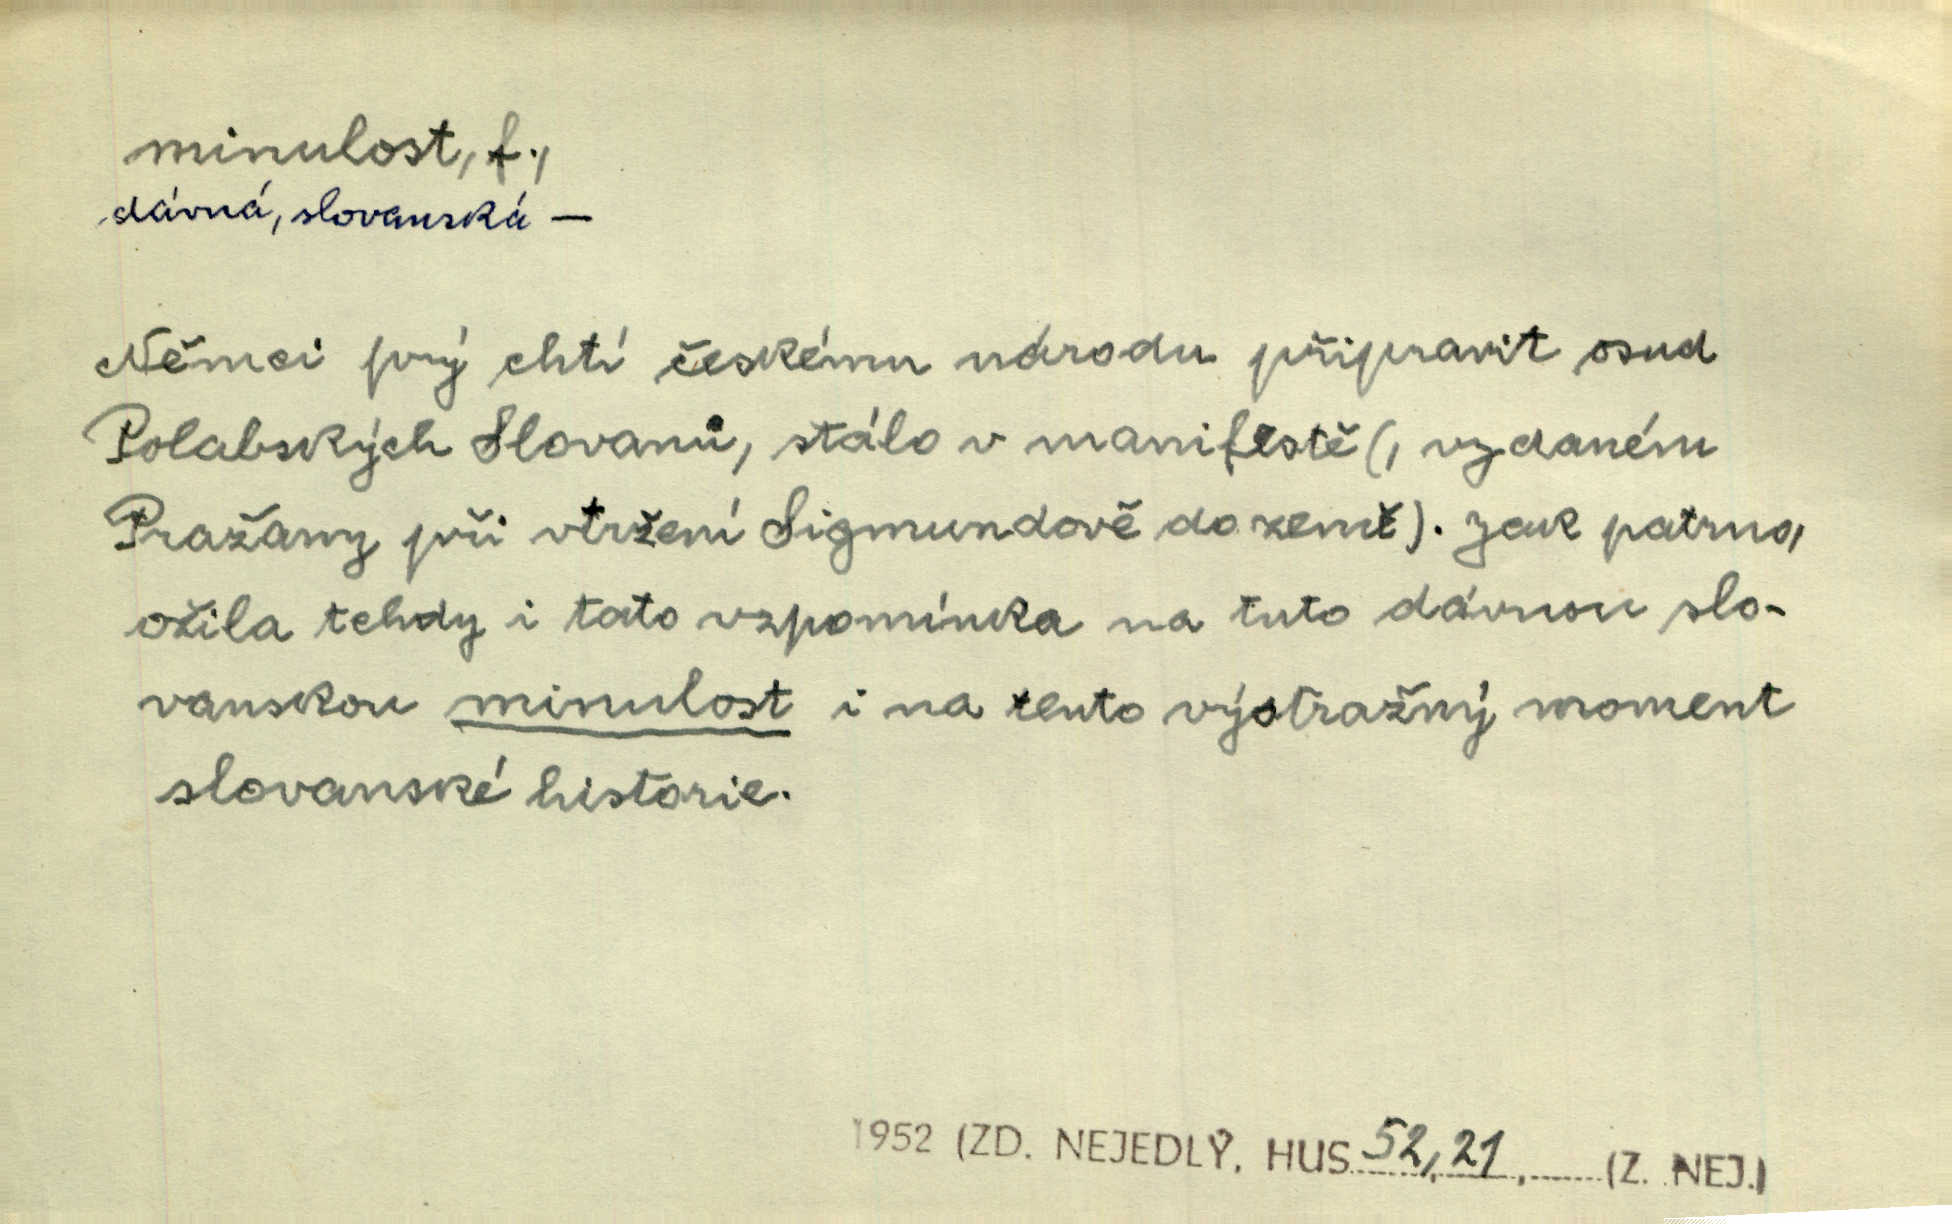 minulost, f.,
dávná, slovanská —
Němci prý chtí českému národu připravit osud
Polabských Slovanů, stálo v manifestě (, vydaném
Pražany při vtržení Sigmundově do země). Jak patrno,
ožila tehdy i tato vzpomínka na tuto dávnou slo-
vanskou minulost i na tento výstražný moment
slovanské historie.
1952 (ZD. NEJEDLÝ, HUS 52, 21, (Z. NEJ.)